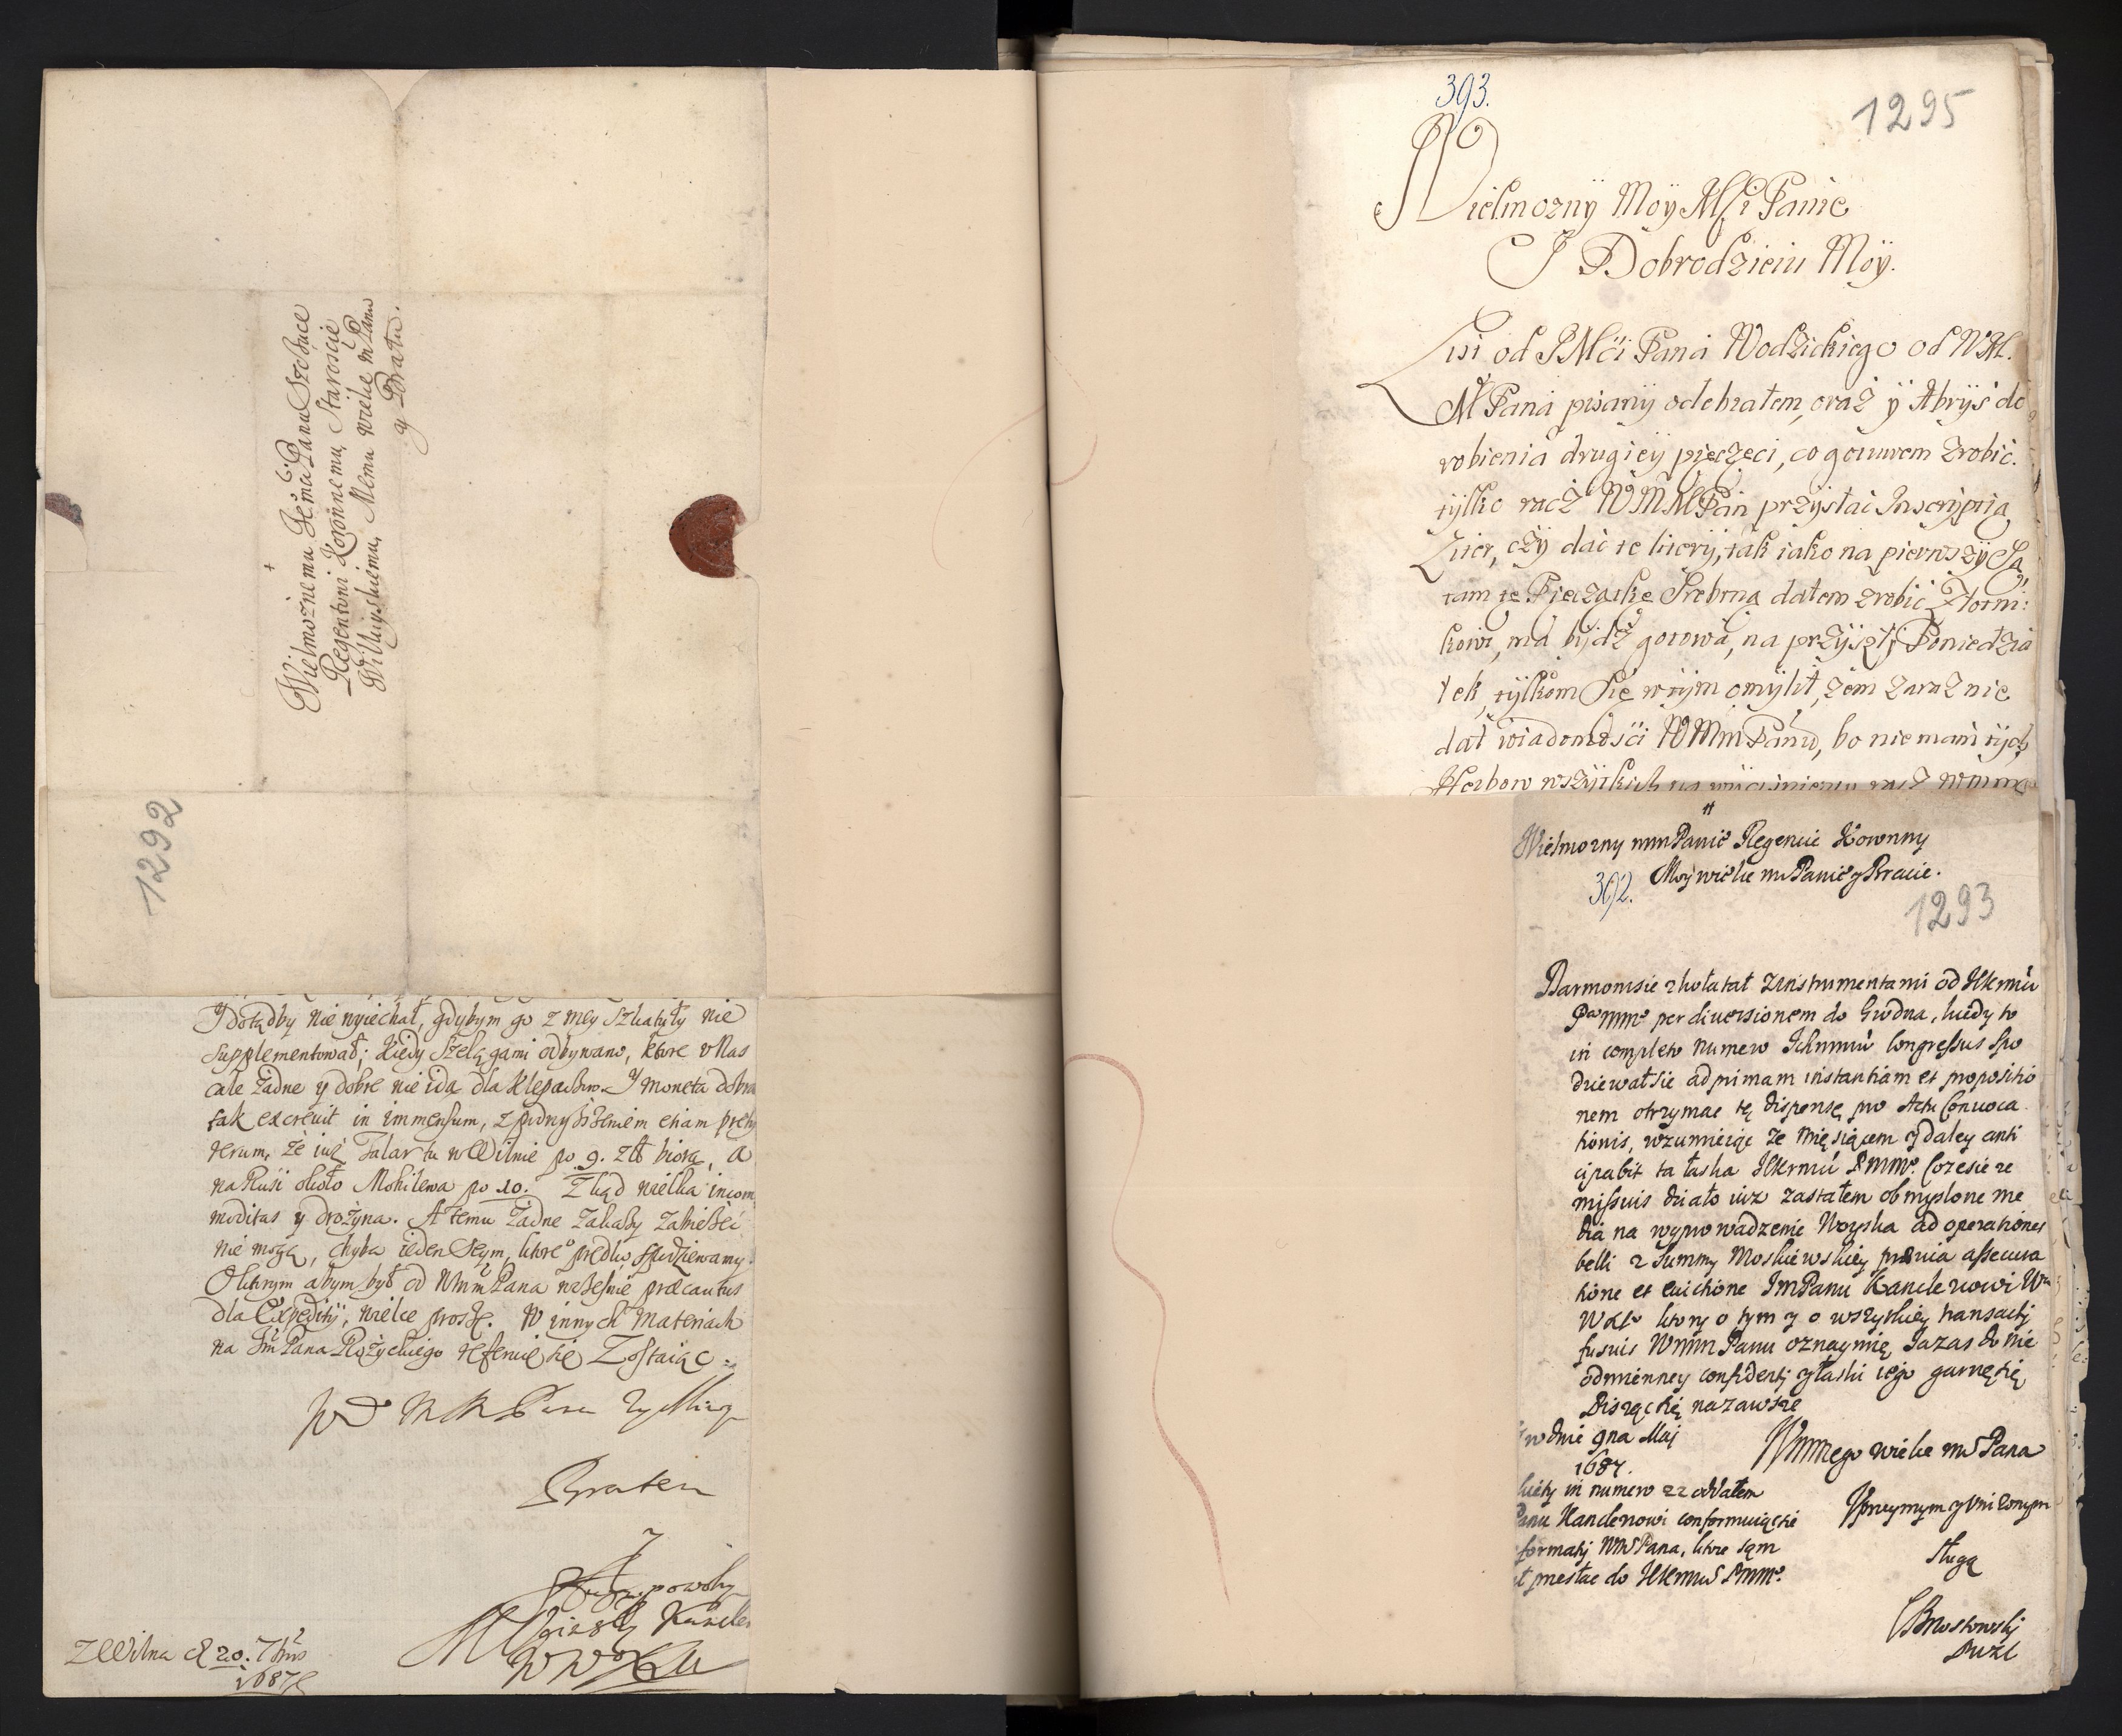 Wielmożnemu Jeo Mci Panu Szczuce
Regentowi Koronnemu, Staroscie
Wilkiyskiemu, Memu wielce m Panu
y Bratu.
1292
Y dotądby nie wyiechał, gdybym go z mey szkatuły nie
supplementował; kiedy szelągami odbywano, ktore v Nas
cale żadne y dobre nie idą dla klepactwa. Y moneta dobra
tak excrevit in immensum, z podwyższeniem etiam
że iuż Talar tu w Wilnie po 9. zł biorą, a
na Rusi około Mohilewa po 10. Zkąd wielka incom
moditas y drożyna. A temu żadne zakazy zabieżeć
nie mogą, chyba ieden Seym, ktore° prędko spodziewamy.
O ktorym abym był od WmM Pana wcześnie præcautus
dla Expeditÿ, wielce proszę. W innych materiach
na Jm Pana Różyckiego referuię się Zostaiąc:
Bratem
y
Sługą powolny
W W X L
Z Wilna d 20. 7bris
1687
393.
1295
Wielmozny Moy Mſci Panie
I Dobrodzieiu Moÿ.
List od JMći Pana Wodzickiego od WM.
M Pana pisanÿ odebrałem, oraz ÿ Abrÿs do
robienia drugieÿ pieczęci, co gotuwem zrobić.
tÿlko racż WMMPan przÿsłać Inscriptią
Liter, cżÿ dać te literÿ, tak iako na pierwszÿ są,
tam te Pieczątkę Srebrną dałem zrobić Złotni:
kowi, ma bÿdż gotowa, na przÿszłÿ Poniedzia
łek, tÿlkom się w tÿm omÿlił, żem zaraz nie
dał wiadomośći WMmPanu, bo nie mam tÿch
Herbow wszÿtkich na
Wielmozny mm Panie Regencie Koronny
Moy wielce m Panie y Bracie.
392.
1293
Darmomsie zkołatał z instrumentami od JKrmći
Pa MMo per diversionem do Grodna, kiedy to
in completo numero Ichmmciu Congressus spo
dziewał sie ad primam instantiam et propositio
nem otrzymac tę dispensę pro Actu Convoca
tionis, rozumieiąc ze Mięsiącem y daley anti
cipabit ta łaska JKrmći PMMo. Co ze sie re
missius działo iuz zastałem obmyslone me
dia na wyprowadzenie Woyska ad operationes
belli z Summy Moskiewskiey prævia assecura
tione et evictione JmPanu Kanclerzowi Wo
WXLo ktory o tym y o wszytkiey transactij
fusius WMm Panu oznaymię, Ja zas do nie
odmienney confidentij y łaski iego garnę się
Pisząc się na zawsze
w dnie 9na Maj
1687.
WMmego wielce m Pana
in numero 22 oddałem
Panu Kanclerzowi conformuiąc sie
formatij WMPana, ktore sąm
przesłac do JKrmći PMMo.
Vprzeymym y Vnizonym
Sługą
CBrzostowskj